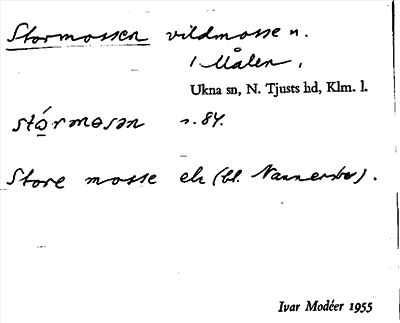 Stormossen vildmosse n.
i Målen.
Ukna sn, N. Tjusts hd, Klm. l.
stórmosən s. 84.
Store mosse ek (bl. Nannersbo).
Ivar Modéer 1955